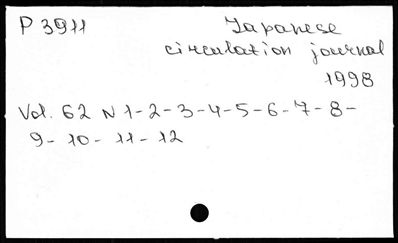 P 3911 Japanese
circulation journal
1998
Vol. 62 N 1-2-3-4-5-6-7-8-
9-10-11-12